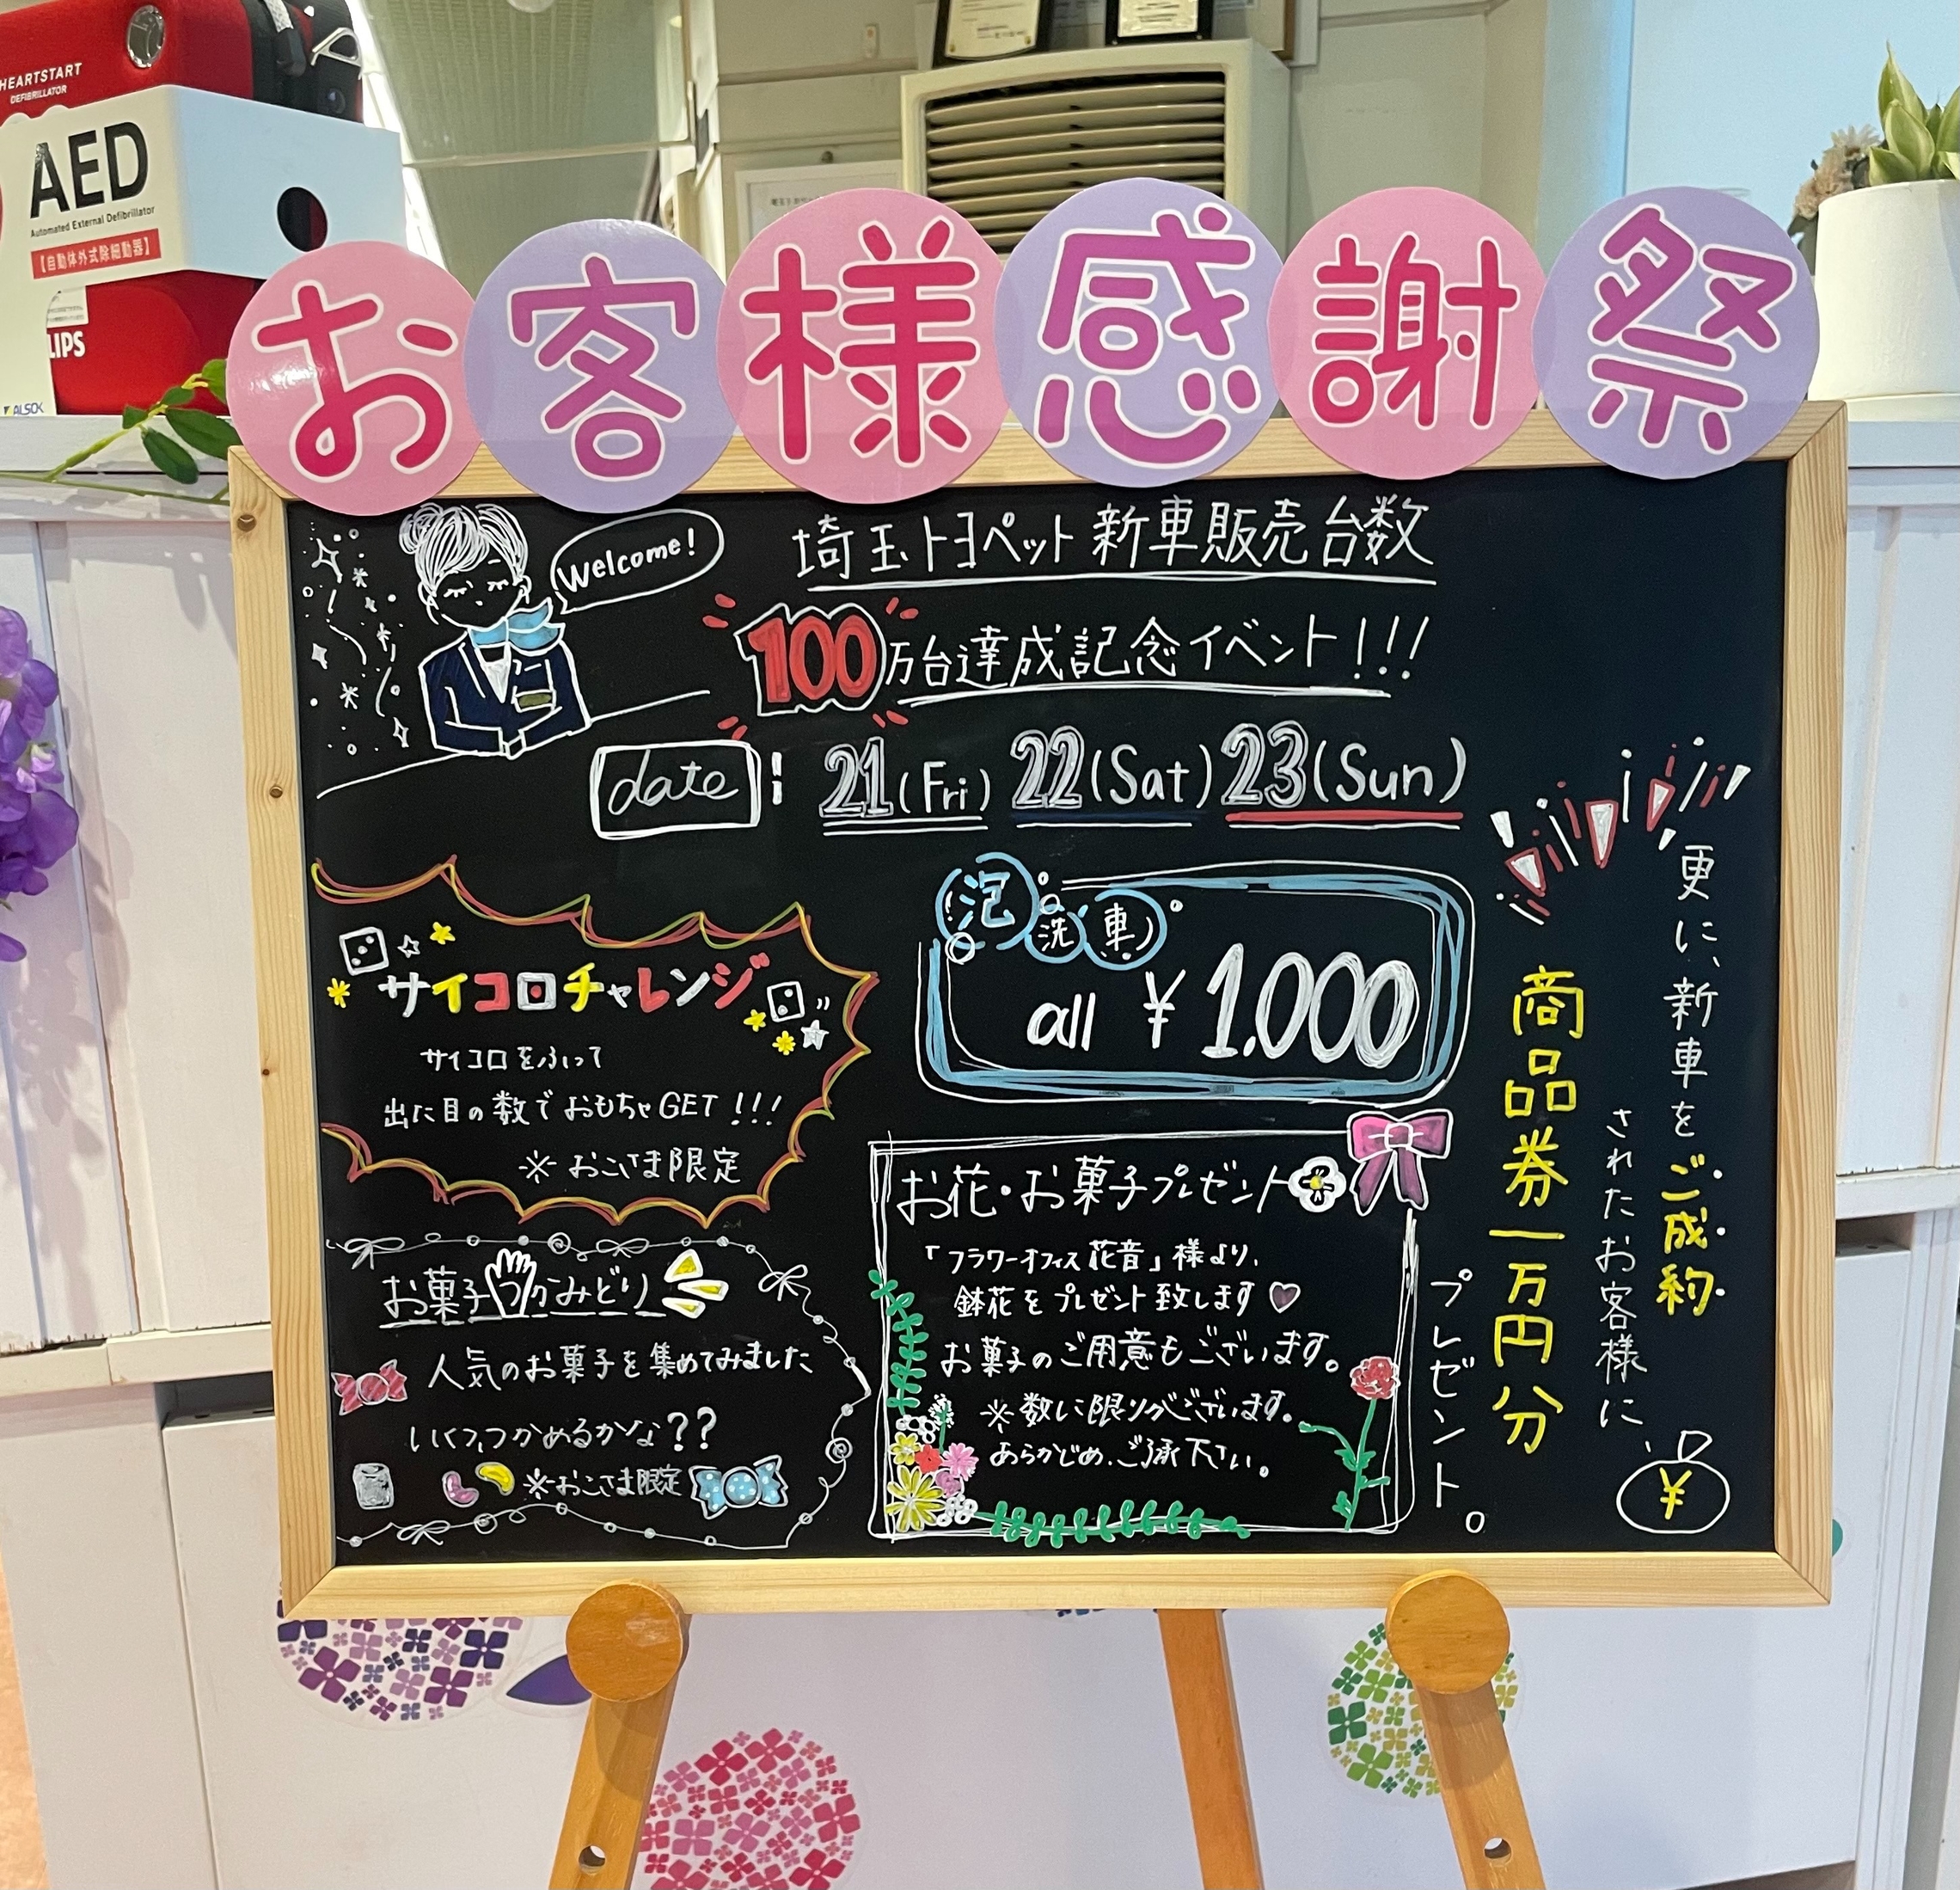 HEARTSTART
DEFIBRILLATOR
AED
Automated External Defibrillator
【自動体外式除細動器】
LIPS
ALSOK
お客様感謝祭
Welcome!
埼玉トヨペット新車販売台数
100万台達成記念イベント!!!
date: 21(Fri) 22(Sat) 23(Sun)
サイコロチャレンジ
サイコロをふって
出た目の数でおもちゃGET!!!
※おこさま限定
お菓子つかみどり
人気のお菓子を集めてみました
いくつつかめるかな??
※おこさま限定
泡洗車
all ¥1.000
お花・お菓子プレゼント
「フラワーオフィス花音」様より、
鉢花をプレゼント致します♡
お菓子のご用意もございます。
※数に限りがございます。
あらかじめ、ご了承下さい。
更に、新車をご成約
されたお客様に、
商品券一万円分
プレゼント。
¥